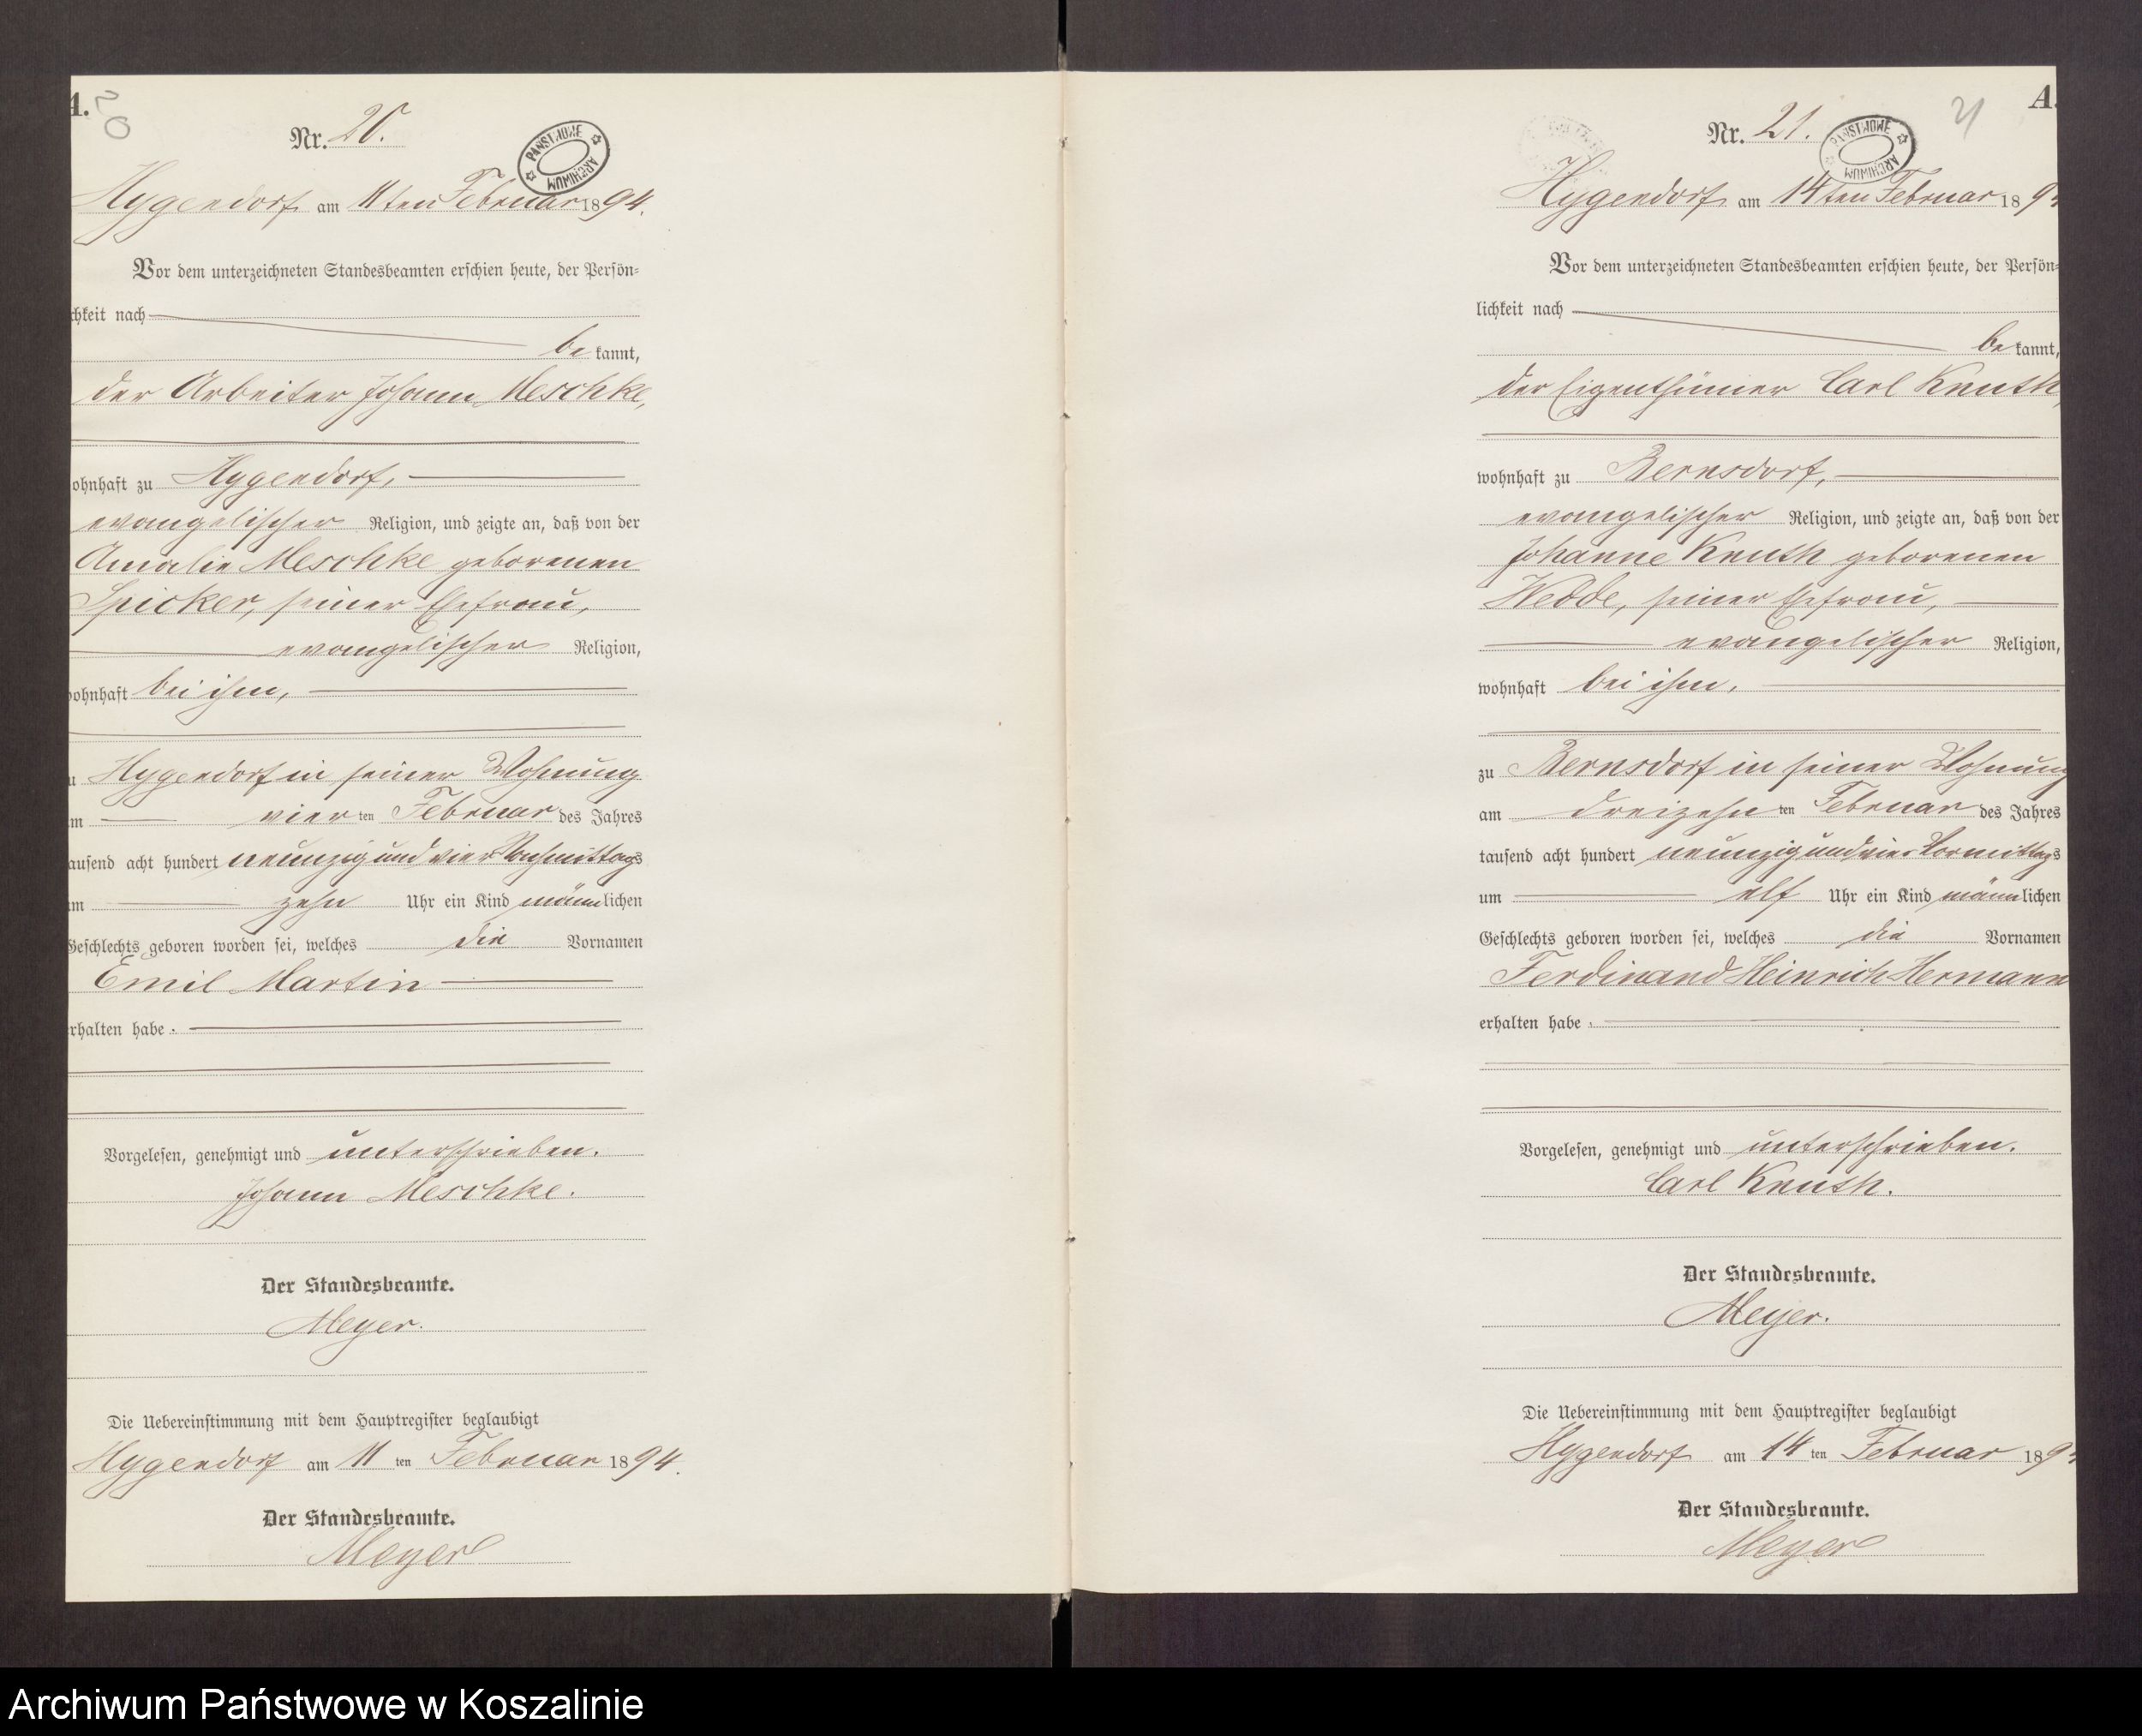 A.
20
Nr. 20.
PAŃSTWOWE ARCHIWUM
Hygendorf am 11ten Februar 1894.
Vor dem unterzeichneten Standesbeamten erschien heute, der Persön-
chkeit nach
be kannt,
der Arbeiter Johann Meschke,
ohnhaft zu Hygendorf,
evangelischer Religion, und zeigte an, daß von der
Amalie Meschke geborenen
Spicker, seiner Ehefrau,
evangelischer Religion,
ohnhaft bei ihm,
u Hygendorf in seiner Wohnung
m vier ten Februar des Jahres
ausend acht hundert neunzig und vier Nachmittags
m zehn Uhr ein Kind männlichen
Geschlechts geboren worden sei, welches die Vornamen
Emil Martin
rhalten habe.
Vorgelesen, genehmigt und unterschrieben.
Johann Meschke.
Der Standesbeamte.
Meyer.
Die Uebereinstimmung mit dem Hauptregister beglaubigt
Hygendorf am 11 ten Februar 1894.
Der Standesbeamte.
Meyer
A.
21
Nr. 21.
PAŃSTWOWE ARCHIWUM
Hygendorf am 14ten Februar 189
Vor dem unterzeichneten Standesbeamten erschien heute, der Persön-
lichkeit nach
be kannt,
der Eigenthümer Carl Knuth,
wohnhaft zu Bernsdorf,
evangelischer Religion, und zeigte an, daß von der
Johanne Knuth geborenen
Wedde, seiner Ehefrau,
evangelischer Religion,
wohnhaft bei ihm,
zu Bernsdorf in seiner Wohnung
am dreizehn ten Februar des Jahres
tausend acht hundert neunzig und vier Vormittags
um elf Uhr ein Kind männlichen
Geschlechts geboren worden sei, welches die Vornamen
Ferdinand Heinrich Hermann
erhalten habe.
Vorgelesen, genehmigt und unterschrieben.
Carl Knuth.
Der Standesbeamte.
Meyer.
Die Uebereinstimmung mit dem Hauptregister beglaubigt
Hygendorf am 14 ten Februar 189
Der Standesbeamte.
Meyer
Archiwum Państwowe w Koszalinie